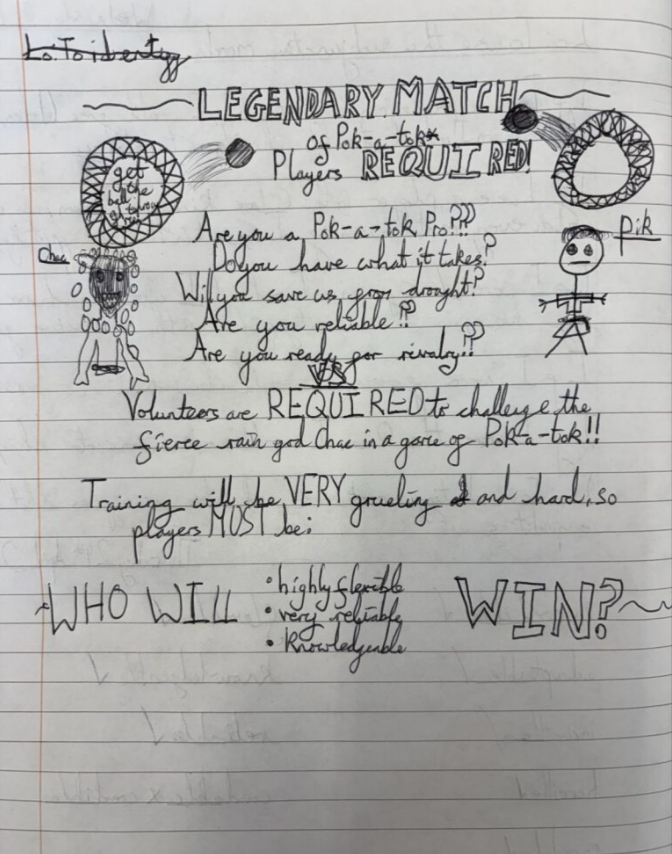 Lo: To identify
LEGENDARY MATCH
of Pok-a-tok*
Players REQUIRED!
get
the
ball
Are you a Pok-a-tok Pro???
Chac
Pik
Do you have what it takes?
Will you save us from drought?
Are you reliable??
Are you ready for rivalry??
VS
Volunteers are REQUIRED to challege the
fierce rain god Chac in a game of Pok-a-tok!!
Training will be VERY grueling and hard, so
players MUST be:
WHO WILL
• highly flexible
• very reliable
• Knowledgeable
WIN?